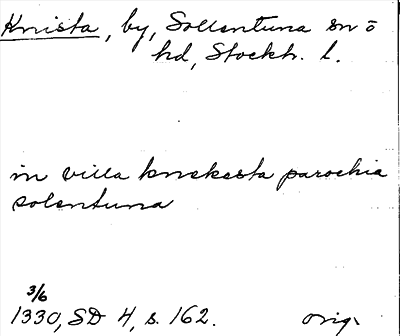 Knista, by, Sollentuna sn o
hd, Stockh. l.
in villa knekesta parochia
solentuna
3/6
1330, SD 4, s. 162. orig.